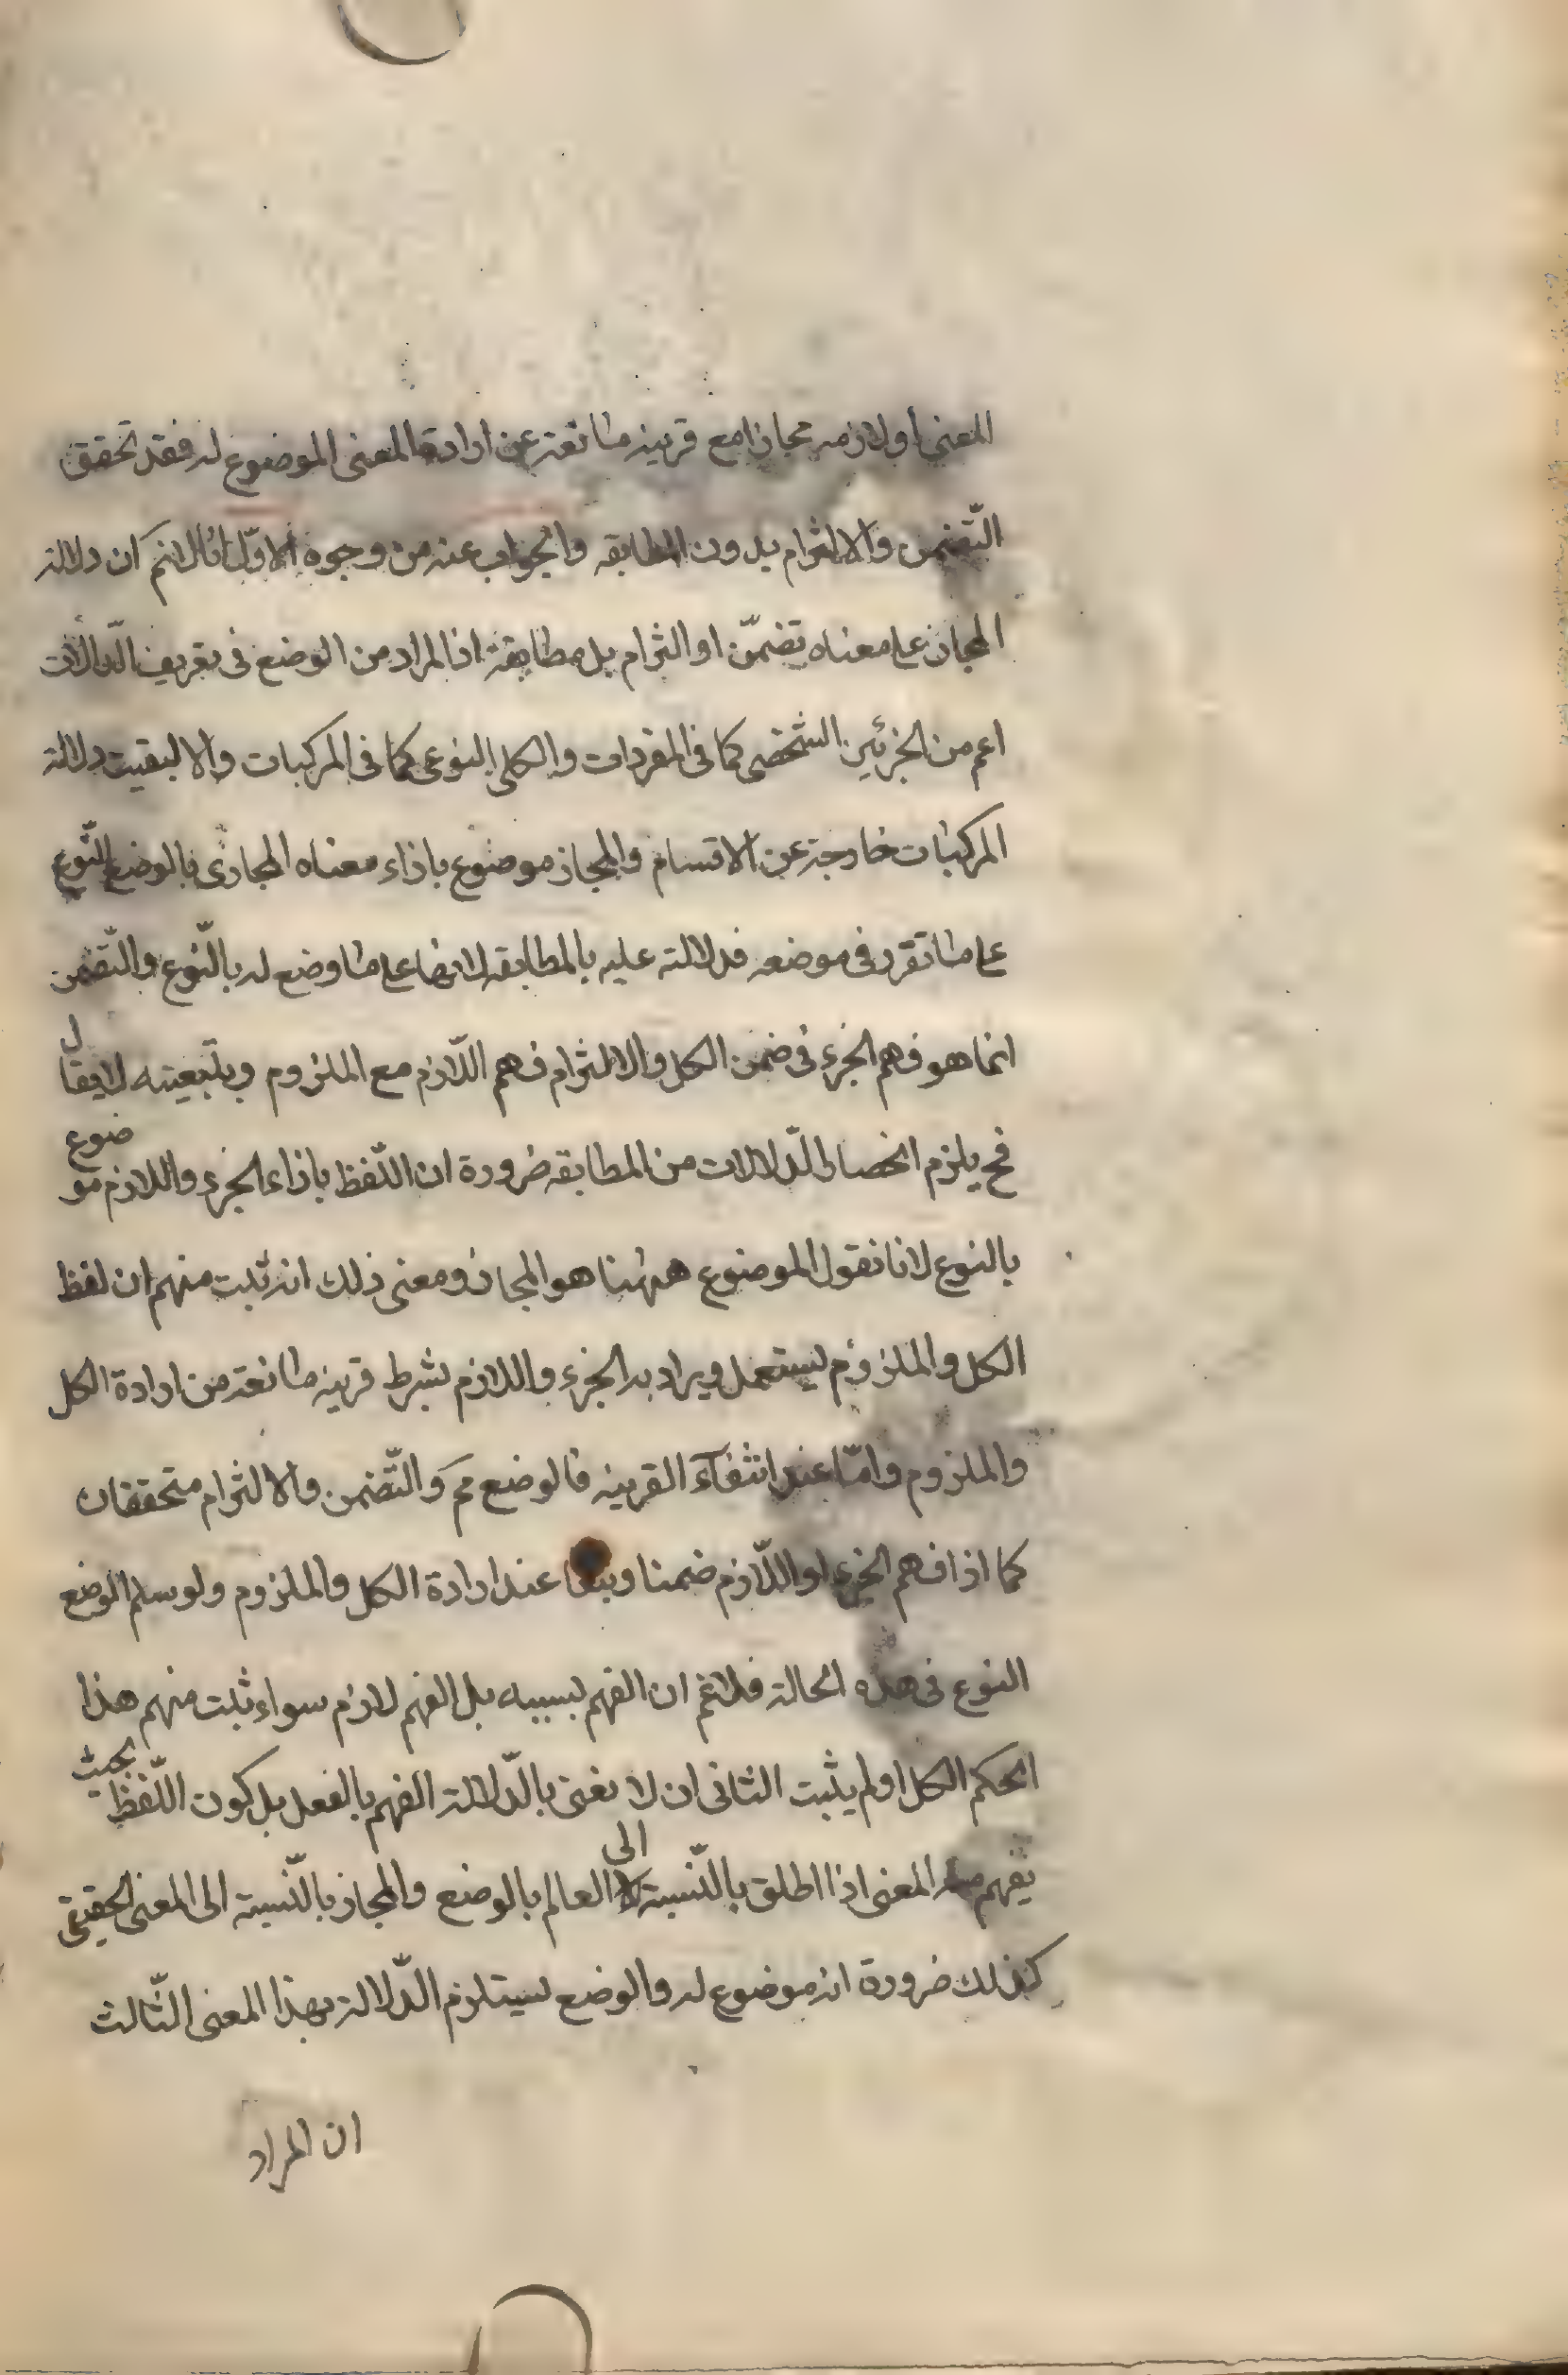 المعنى او لازمه مجازا مع قرينة مانعة عن ارادة المعنى الموضوع له فقد تحقق
التّضمن والالتزام بدون المطابقه والجواب عنه من وجوه الاوّل انا لا نم ان دلالة
المجاز على معناه تضمّن او التزام بل مطابقة اذ المراد من الوضع فى تعريف الدّلالات
اعم من الجزئين الشخصى كما فى المفردات والكلى النوعى كما فى المركبات والا لبقيت دلالة
المركبات خارجة عن الاقسام والمجاز موضوع باذاء معناه المجازى بالوضع النّوع
على ما تقرر فى موضعه فدلالته عليه بالمطابقه لانها على ما وضع له بالنّوع والتّضمن
انما هو فهم الجزء فى ضمن الكل والالتزام فهم اللّازم مع الملزوم وبتبعيته لا يقال
فح يلزم انحصار الدّلالات من المطابقه ضرورة ان اللّفظ باذاء الجزء واللازم موضوع
بالنوع لانا نقول الموضوع ههنا هو المجاز ومعنى ذلك انه ثبت منهم ان لفظ
الكل والملزوم يستعمل ويراد به الجزء واللازم بشرط قرينة مانعة من ارادة الكل
والملزوم وامّا عند انتفآء القرينه فالوضع مم والتّضمن والالتزام متحققان
كما اذا فهم الجزء او اللّازم ضمنا وتبعا عند ارادة الكل والملزوم ولو سلم الوضع
النوع فى هذه الحالة فلا نم ان الفهم بسببه بل الفهم لازم سواء ثبت منهم هذا
الحكم الكل او لم يثبت الثانى ان لا نعنى بالدّلالة الفهم بالفعل بل كون اللّفظ بحيث
يفهم منه المعنى اذا اطلق بالنّسبة الى العالم بالوضع والمجاز بالنّسبة الى المعنى الحقيقى
كذلك ضرورة انه موضوع له والوضع يستلزم الدّلالة بهذا المعنى الثّالث
ان المراد